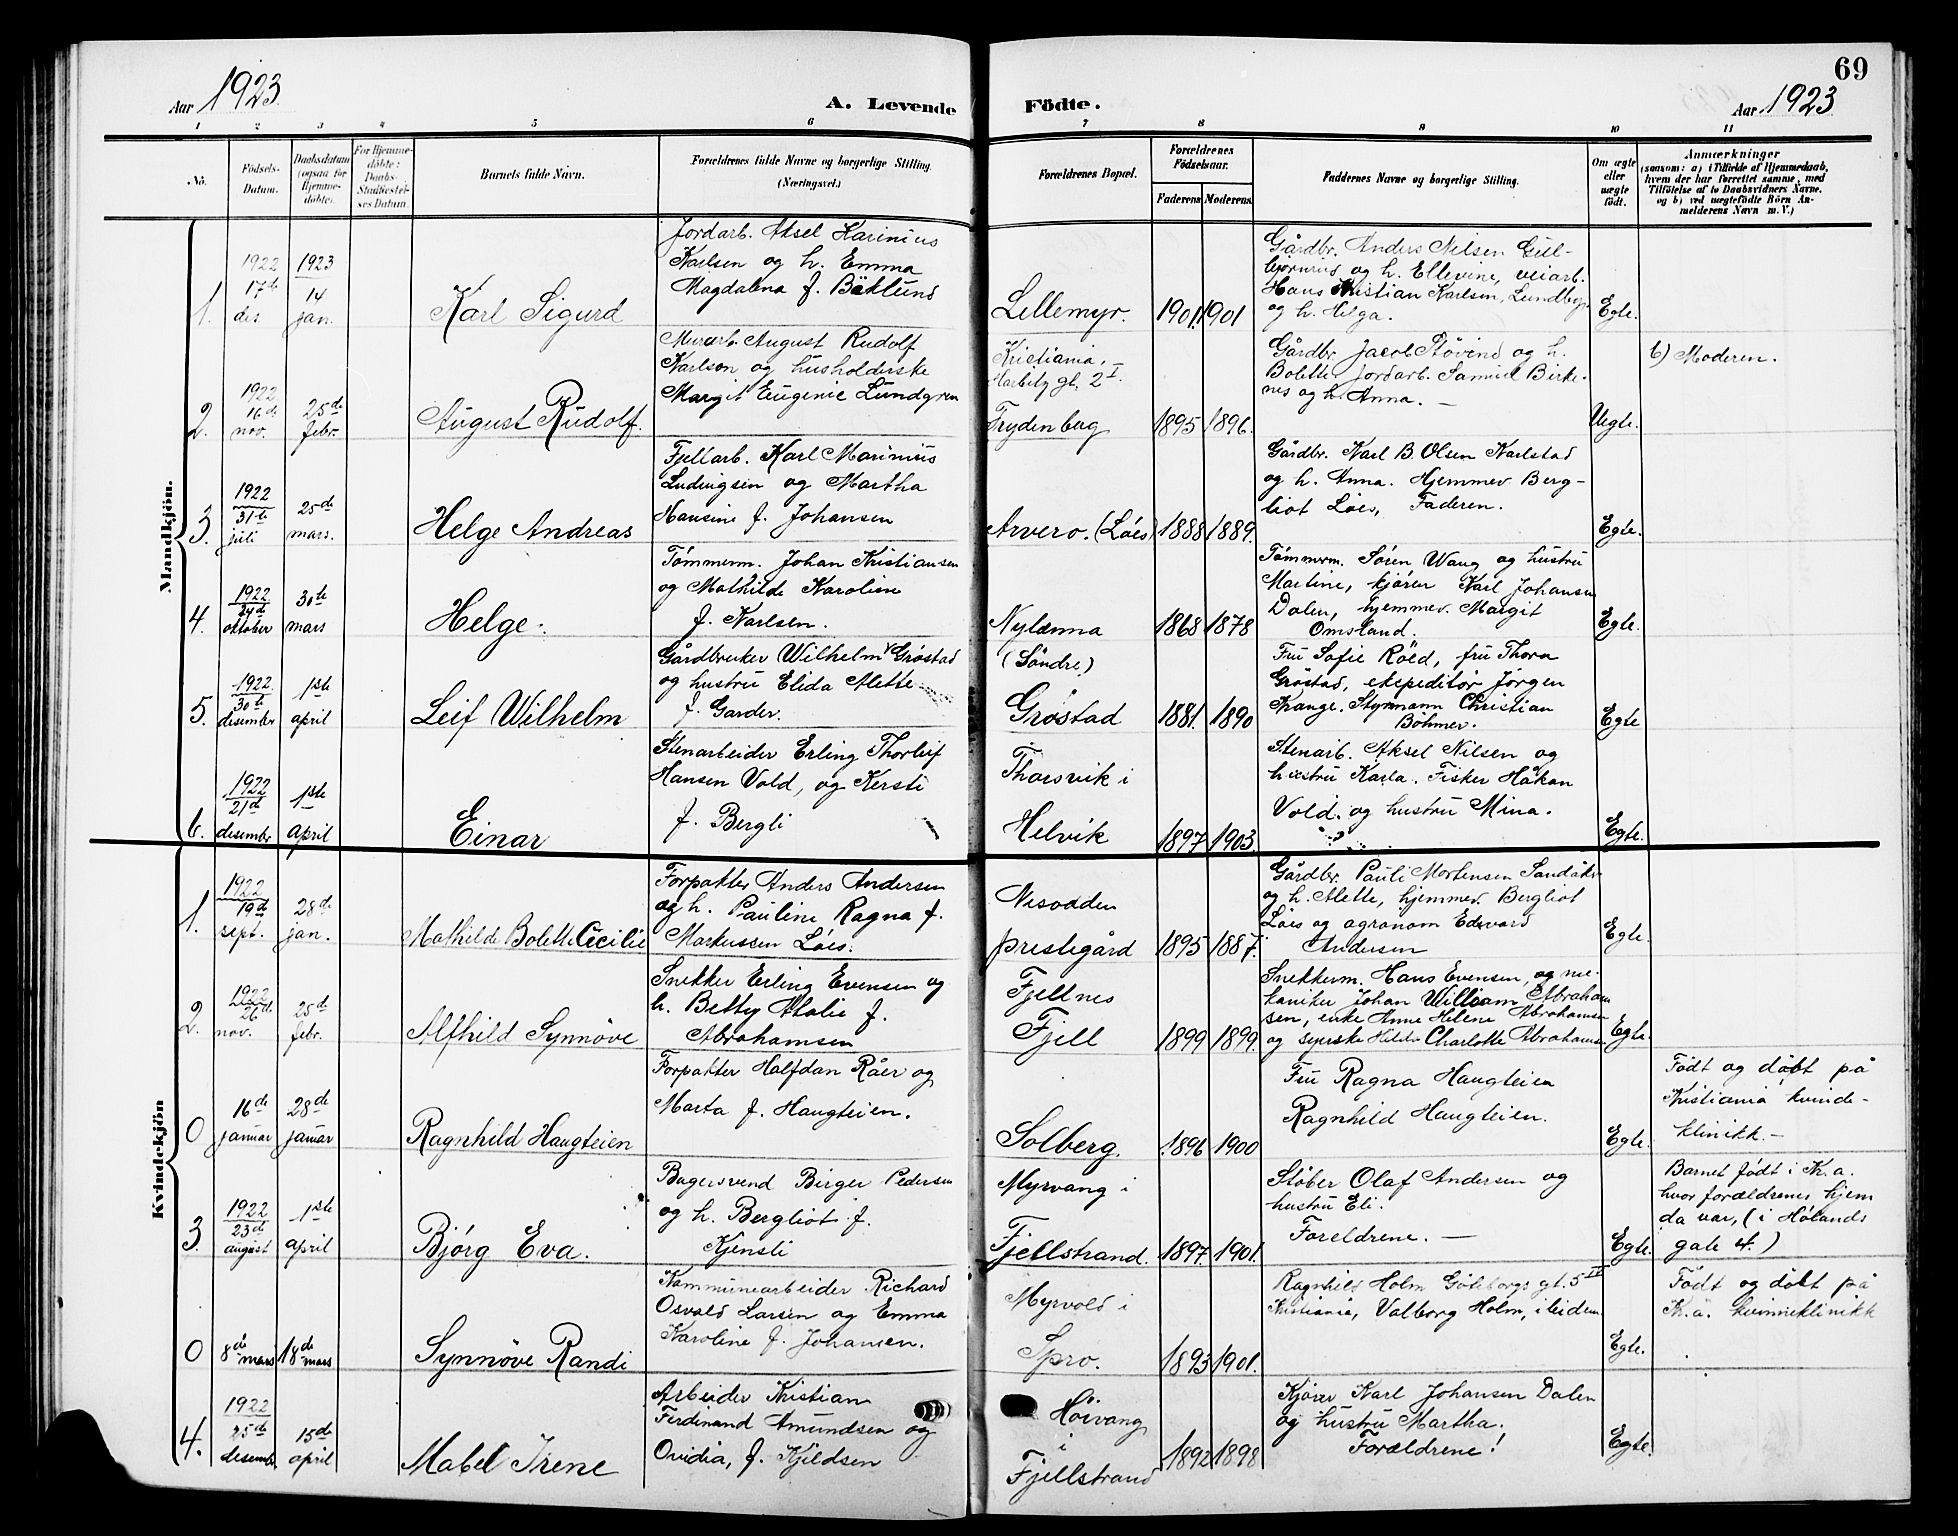 69
Aar 1923.
A. Levende Födte.
Aar 1923
1 2 3 4 5 6 7 8 9 10 11
No.
Födsels-
Datum.
Daabsdatum
(ogsaa for
Hjemme-
döbte).
For Hjemme-
döbte:
Daabs-
Stadfæstel-
ses Datum.
Barnets fulde Navn.
Forældrenes fulde Navne og borgerlige Stilling.
(Næringsvei.)
Forældrenes Bopæl.
Forældrenes
Födselsaar.
Faderens Moderens
Faddernes Navne og borgerlige Stilling.
Om ægte
eller
uægte
født.
Anmærkninger
(saasom: a) i Tilfælde af Hjemmedaab,
hvem der har forrettet samme, med
Tilföielse af to Daabsvidners Navne,
og b) ved uægtefödte Börn An-
melderens Navn m. V.)
Mandkjön.
1.
1922
17de
des
1923
14
jan.
Karl Sigurd
Jordarb. Aksel Karinius
Karlsen og h. Emma
Magdalena f. Bäklund
Lillemyr.
1901. 1901
Gårdbr. Anders Nilsen Gul-
bjørnrud og h. Ellevine, veiarb.
Hans Kristian Karlsen, Lundby,
og h. Helga.
Egte.
2.
1922
16de
nov.
25de
febr.
August Rudolf.
Murarb. August Rudolf
Karlsen og husholderske
Margit Eugenie Lundgren
Kristiania,
gt. 2 I.
Frydenberg
1895 1896.
Gårdbr. Jacob Støvind og h.
Bolette. Jordarb. Samuel Birke-
nes og h. Anna. —
Uegte.
b) Moderen.
3.
1922
31te
juli
25de
mars.
Helge Andreas
Fjellarb. Karl Marinius
Ludvigsen og Martha
Hansine f. Johansen
Arvero. (Løes)
1888 1889.
Gårdbr. Karl B. Olsen Karlstad
og h. Anna. Hjemmev. Berg-
liot Løes, Faderen.
Egte.
4.
1922.
24de
oktober
30te
mars
Helge.
Tømmerm. Johan Kristiansen
og Mathilde Karoline
f. Karlsen.
Nylænna
1868 1878
Tømmerm. Søren Wang og hustru
Martine, kjører Karl Johansen
Dalen, hjemmev. Margit
Omsland.
Egte.
5.
1922.
30te
desember
1ste
april
Leif Wilhelm
Gårdbruker Wilhelm Grøstad
og hustru Elida Alette
f. Garder.
(Søndre)
Grøstad
1881. 1890
Fru Sofie Røed, fru Thora
Grøstad, ekspeditør Jørgen
Krange. Styrmann Christian
Bøhmer.
Egte
6.
1922
21de
desember
1ste
april
Einar
Stenarbeider Erling Thorleif
Hansen Vold, og Kersti
f. Bergli
Thorsvik i
Helvik
1897 1903.
Stenarb. Aksel Nilsen og
hustru Karla. Fisker Håkon
Vold. og hustru Mina.
Egte.
Kvindekjön
1.
1922
19de
sept.
28de
jan.
Mathilde Bolette Cecilie
Forpakter Anders Andersen
og h. Pauline Ragna f.
Markussen Løes.
Nesodden
prestegård
1895 1887.
Gårdbr. Pauli Mortensen Sandåker
og h. Alette, hjemmev. Bergliot
Løes og agronom Edvard
Andersen
Egte.
2.
1922
26de
nov.
25de
febr.
Alfhild Synnøve
Snekker Erling Evensen og
h. Betty Atalie f.
Abrahamsen
Fjellnes
Fjell
1899 1899.
Snekkerm. Hans Evensen, og me-
kaniker Johan William Abraham
sen, enke Anne Helene Abrahamsen
og syerske Hilda Charlotte Abrahams
Egte.
0
16de
januar
28de
januar
Ragnhild Haugteien
Forpakter Halfdan Råer og
Marta f. Haugteien.
Solberg.
1896 1900
Fru Ragna Haugteien
Ragnhild Haugteien.
Egte.
Født og døbt på
Kristiania kvinde-
klinikk. —
3.
1922
23de
august
1ste
april
Bjørg Eva.
Bagersvend Birger Pedersen
og h. Bergliot f.
Kjensli
Myrvang i
Fjellstrand.
1897 1901.
Støber Olaf Andersen og
hustru Eli.
Foreldrene. —
Egte.
Barnet født i Kr.a.
hvor forældrenes hjem
da var, (i Hølands
gate 4.)
0
8de mars
18de mars
Synnøve Randi
Kommunearbeider Richard
Osvald Larsen og Emma
Karoline f. Johansen.
Myrvold i
Spro.
1893 1901.
Ragnhild Holm Göteborgs gt. 5 IV
Kristiania, Valborg Holm, ibidem
Egte.
Født og døbt på
Kr.a. kvinneklinikk
4.
1922
25de
desemb.
15de
april
Mabel Irene
Arbeider Kristian
Ferdinand Amundsen og
Ovidia, f. Kjeldsen
Høivang
i
Fjellstrand
1892 1898
Kjører Karl Johansen Dalen
og hustru Martha.
Forældrene!
Egte.